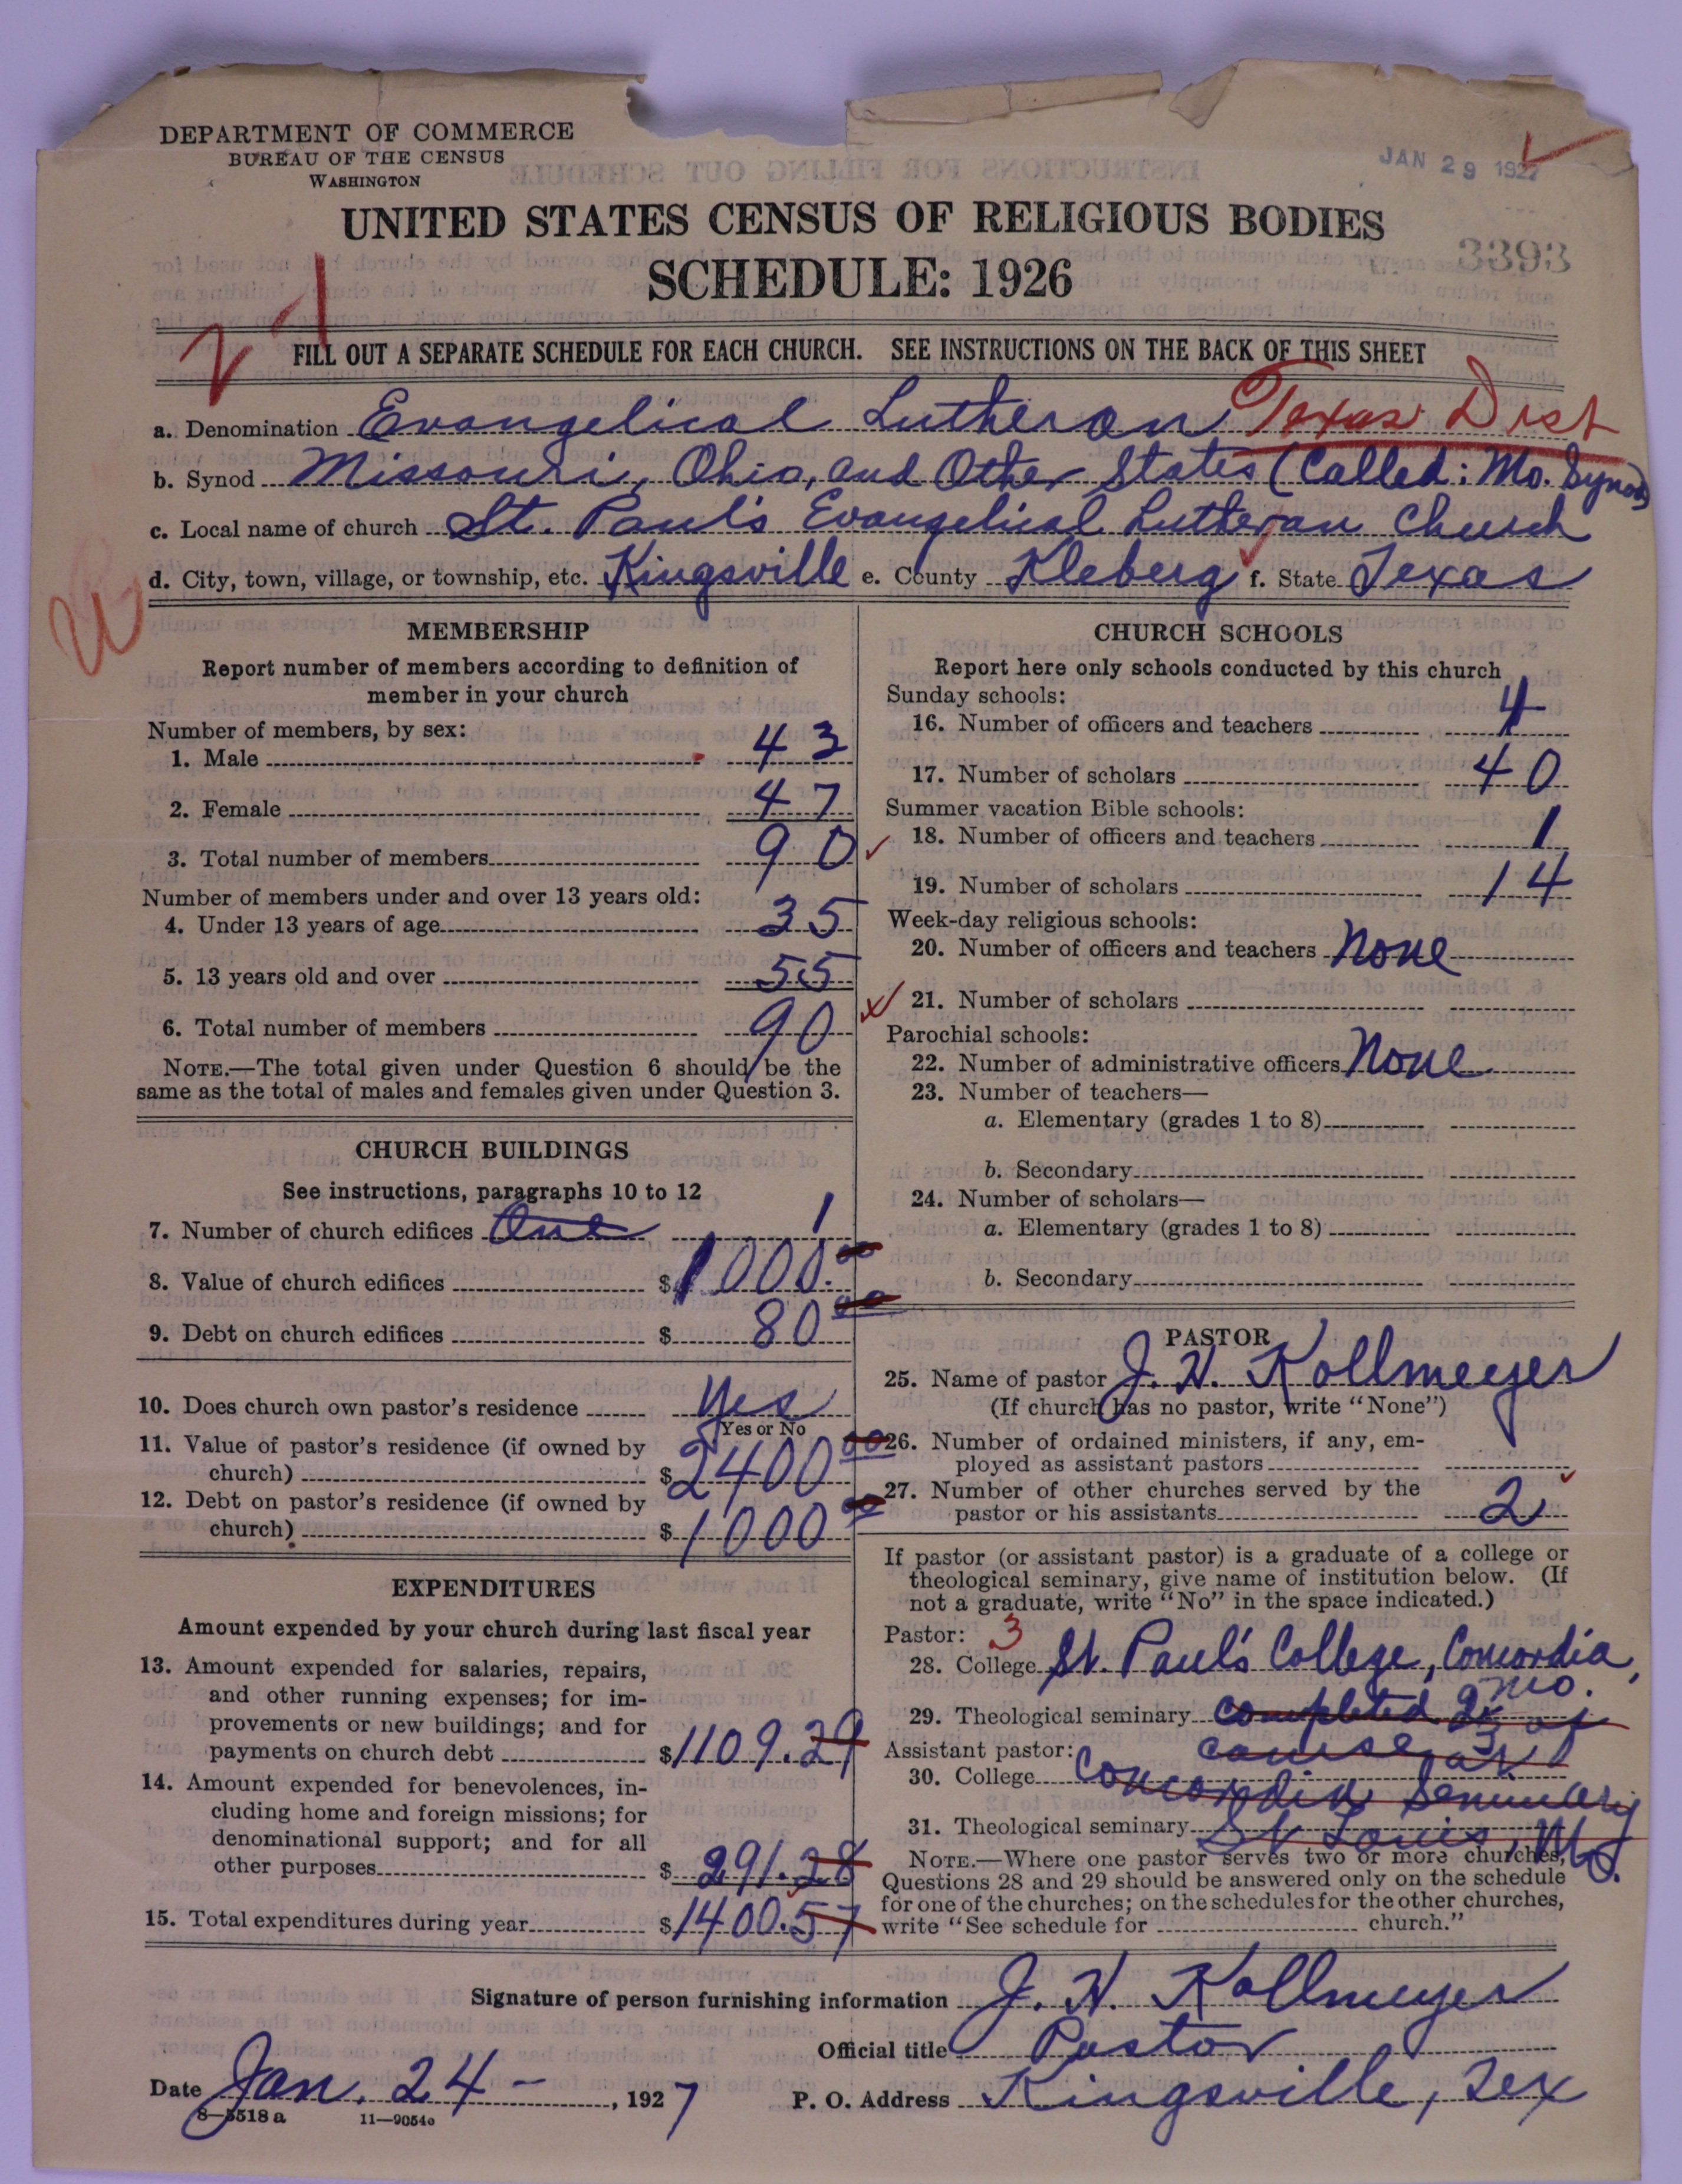 DEPARTMENT OF COMMERCE
BUREAU OF THE CENSUS
WASHINGTON
JAN 29 1927
UNITED STATES CENSUS OF RELIGIOUS BODIES
SCHEDULE: 1926
3393
FILL OUT A SEPARATE SCHEDULE FOR EACH CHURCH. SEE INSTRUCTIONS ON THE BACK OF THIS SHEET
a. Denomination Evangelical Lutheran Texas Dist
b. Synod Missouri, Ohio, and Other States (Called: Mo. Synod)
c. Local name of church St. Paul's Evangelical Lutheran Church
d. City, town, village, or township, etc. Kingsville e. County Kleberg f. State Texas
MEMBERSHIP
Report number of members according to definition of
member in your church
Number of members, by sex:
1. Male 43
2. Female 47
3. Total number of members 90
Number of members under and over 13 years old:
4. Under 13 years of age 35
5. 13 years old and over 55
6. Total number of members 90
NOTE.—The total given under Question 6 should be the
same as the total of males and females given under Question 3.
CHURCH BUILDINGS
See instructions, paragraphs 10 to 12
7. Number of church edifices One 1
8. Value of church edifices $1000.00
9. Debt on church edifices $ 80 00
10. Does church own pastor's residence Yes
Yes or No
11. Value of pastor's residence (if owned by
church) $2400 00
12. Debt on pastor's residence (if owned by
church) $1000 00
EXPENDITURES
Amount expended by your church during last fiscal year
13. Amount expended for salaries, repairs,
and other running expenses; for im-
provements or new buildings; and for
payments on church debt $1109.29
14. Amount expended for benevolences, in-
cluding home and foreign missions; for
denominational support; and for all
other purposes $ 291.28
15. Total expenditures during year $1400.57
CHURCH SCHOOLS
Report here only schools conducted by this church
Sunday schools:
16. Number of officers and teachers 4
17. Number of scholars 40
Summer vacation Bible schools:
18. Number of officers and teachers 1
19. Number of scholars 14
Week-day religious schools:
20. Number of officers and teachers None
21. Number of scholars
Parochial schools:
22. Number of administrative officers None
23. Number of teachers—
a. Elementary (grades 1 to 8)
b. Secondary
24. Number of scholars—
a. Elementary (grades 1 to 8)
b. Secondary
PASTOR
25. Name of pastor J. H. Kollmeyer
(If church has no pastor, write "None")
26. Number of ordained ministers, if any, em-
ployed as assistant pastors
27. Number of other churches served by the
pastor or his assistants 2
If pastor (or assistant pastor) is a graduate of a college or
theological seminary, give name of institution below. (If
not a graduate, write "No" in the space indicated.)
Pastor: 3
28. College St. Paul's College, Concordia,
Mo.
29. Theological seminary completed of
Assistant pastor: course at
30. College Concordia Seminary
31. Theological seminary St Louis, Mo.
NOTE.—Where one pastor serves two or more churches,
Questions 28 and 29 should be answered only on the schedule
for one of the churches; on the schedules for the other churches,
write "See schedule for church."
Signature of person furnishing information J. H. Kollmeyer
Official title Pastor
Date Jan. 24 - , 1927 P. O. Address Kingsville, Tex
8—5518 a 11—9054o